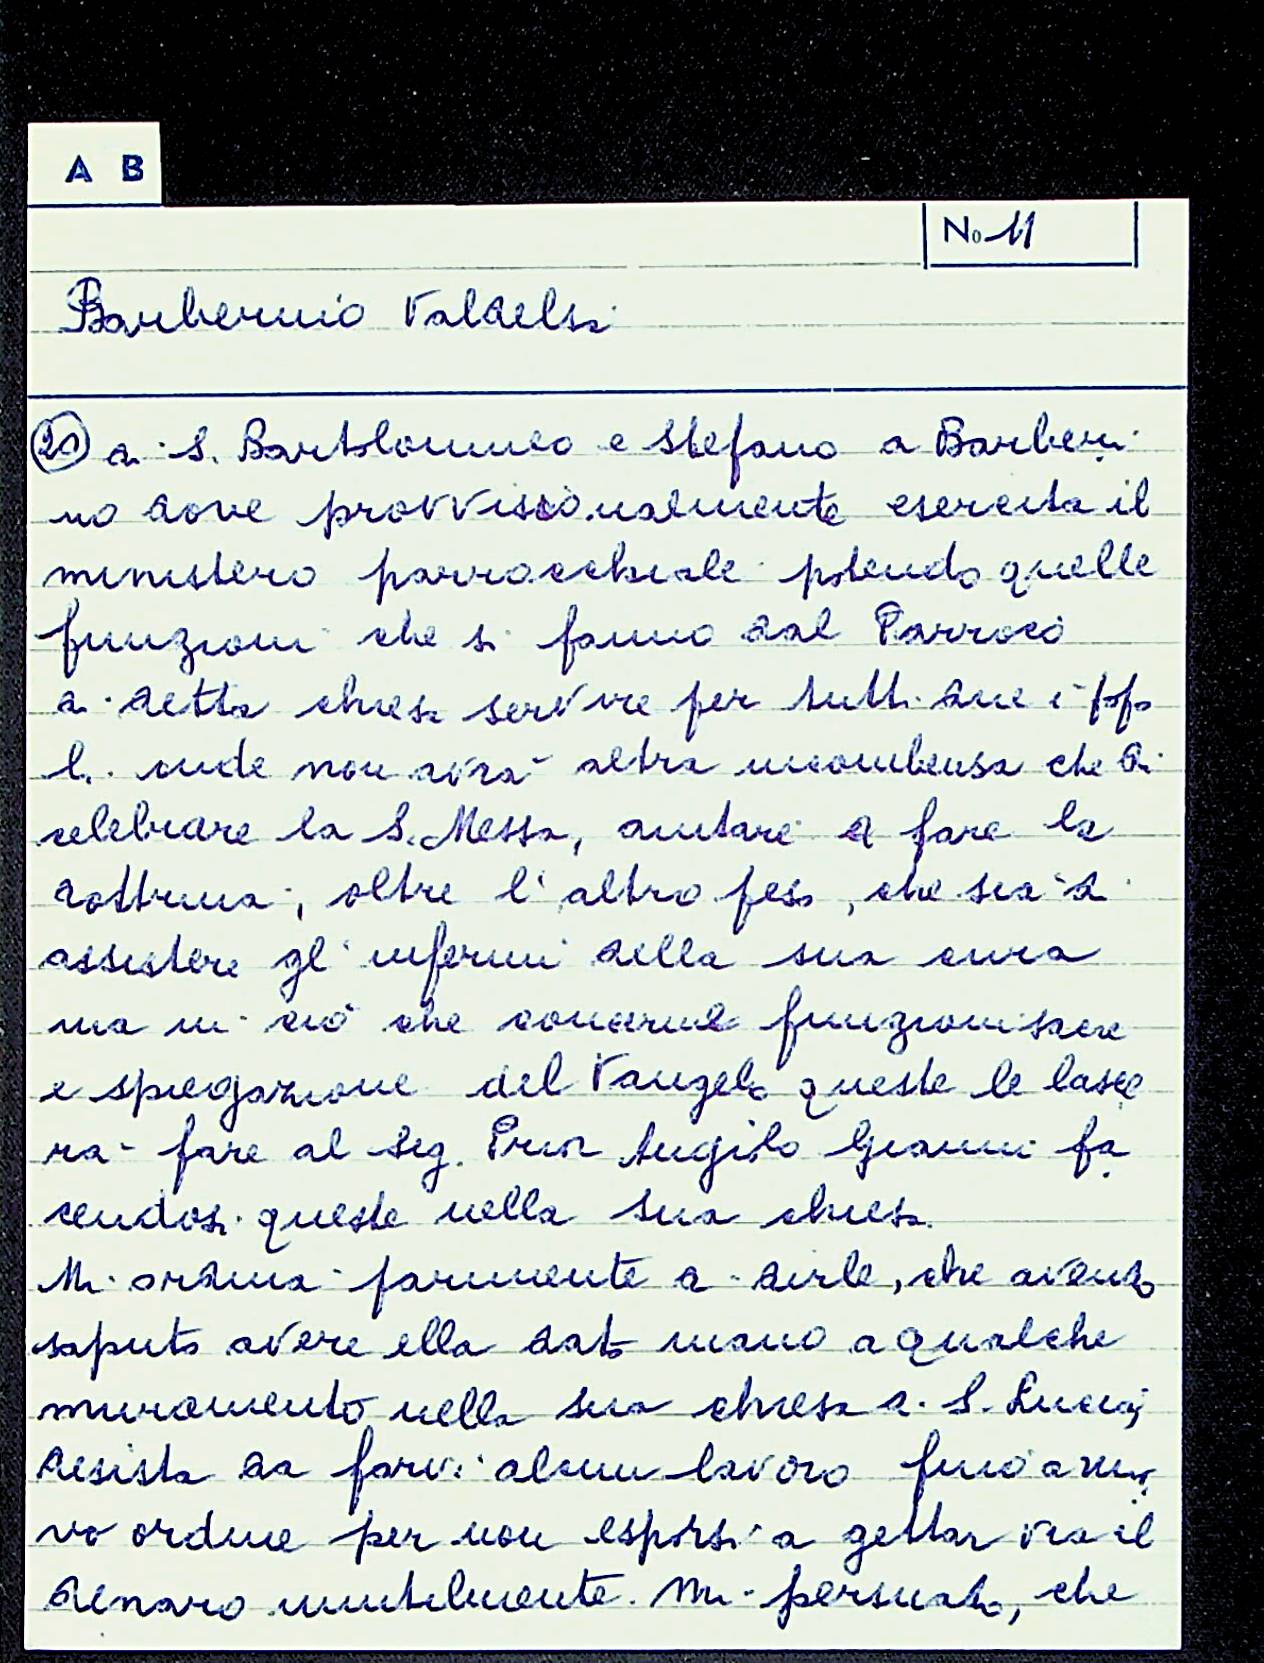 A B
No 11
Barberino Valdelsa
(21) di S. Bartolommeo e Stefano a Barberi
no dove provvisionalmente esercita il
ministero parrocchiale potendo quelle
funzioni che si fanno dal Parroco
di detta chiesa servire per tutti due i popo
li. onde non avrà altra incombensa che di
celebrare la S. Messa, aiutare a fare la
dottrina, oltre l'altro peso, che sia di
assistere gl'infermi della sua cura
ma in ciò che concerne funzioni sacre
e spiegazione del Vangelo queste le lasce
rà fare al Sig. Prior Angiolo Gianni fa
cendosi queste nella sua chiesa.
Mi ordina parimente di dirle, che avendo
saputo avere ella dato mano a qualche
muramento nella sua chiesa di S. Lucia,
desista da farvi alcun lavoro fino a nuo
vo ordine per non esporsi a gettar via il
denaro inutilmente. Mi persuado, che